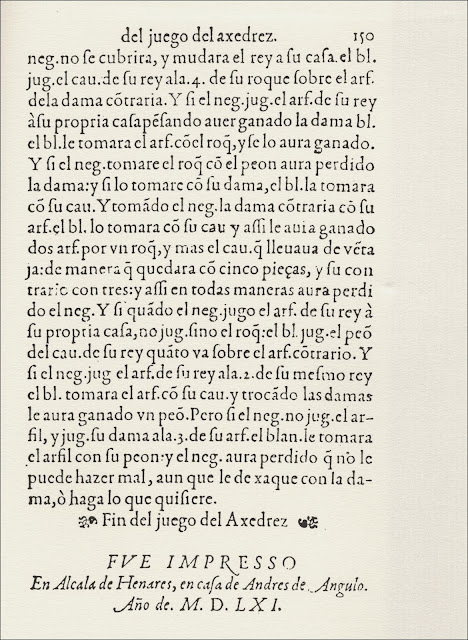 del juego del axedrez. 150
neg.no se cubrira, y mudara el rey a su casa.el bl.
jug.el cau.de su rey ala.4. de su roque sobre el arf.
dela dama cõtraria.Y si el neg.jug.el arf.de su rey
à su propria casa pẽsando auer ganado la dama bl.
el bl.le tomara el arf.cõel roq̃,y se lo aura ganado.
Y si el neg.tomare el roq̃ cõ el peon aura perdido
la dama:y si lo tomare cõ su dama,el bl.la tomara
cõ su cau.Y tomãdo el neg.la dama cõtraria cõ su
arf.el bl. lo tomara cõ su cau y assi le auia ganado
dos arf.por vn roq̃,y mas el cau.q̃ lleuaua de vẽta
ja:de manera q̃ quedara cõ cinco pieças, y su con
trario con tres:y assi en todas maneras aura perdi
do el neg.Y si quãdo el neg.jugo el arf. de su rey à
su propria casa,no jug.sino el roq̃:el bl. jug.el peõ
del cau.de su rey quãto va sobre el arf.cõtrario. Y
si el neg.jug el arf.de su rey ala.2.de su mesmo rey
el bl. tomara el arf.cõ su cau.y trocãdo las damas
le aura ganado vn peõ.Pero si el neg.no jug.el ar-
fil, y jug.su dama ala.3.de su arf.el blan.le tomara
el arfil con su peon:y el neg. aura perdido q̃ no le
puede hazer mal, aun que le de xaque con la da-
ma,ò haga lo que quisiere.
Fin del juego del Axedrez
FVE IMPRESSO
En Alcala de Henares, en casa de Andres de Angulo.
Año de M. D. LXI.